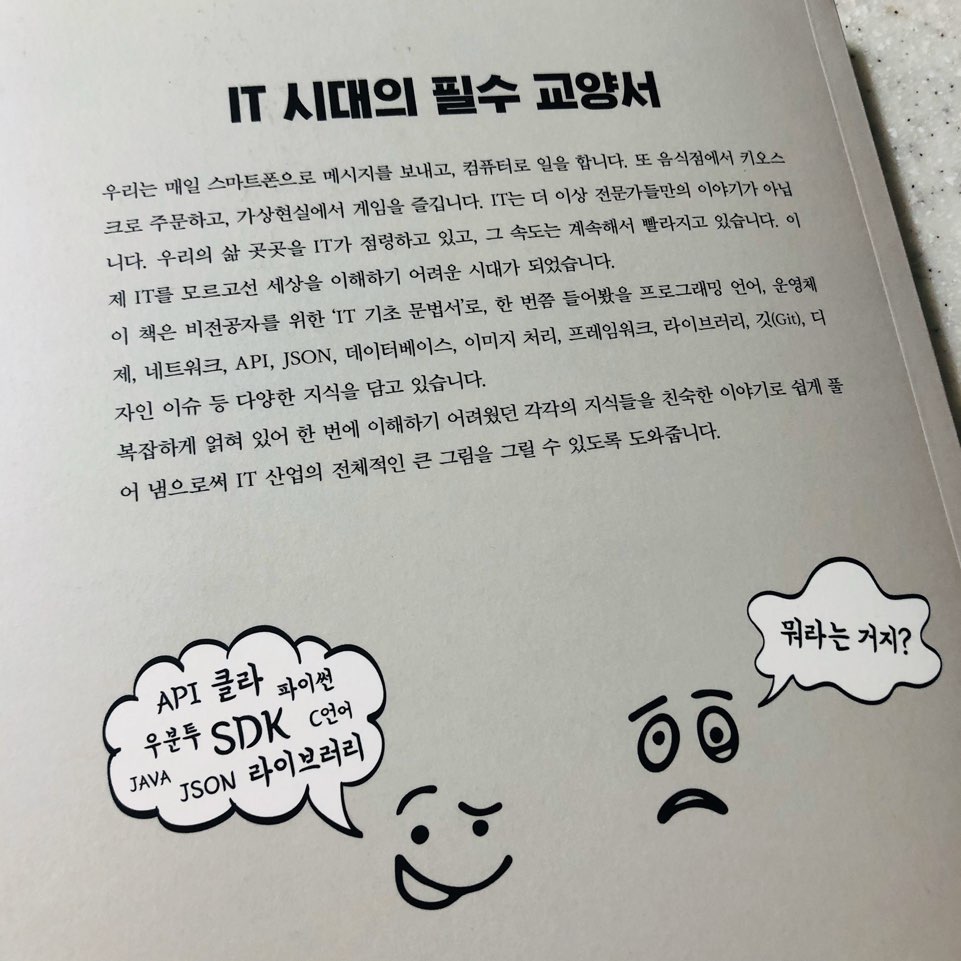 IT 시대의 필수 교양서
우리는 매일 스마트폰으로 메시지를 보내고, 컴퓨터로 일을 합니다. 또 음식점에서 키오스
크로 주문하고, 가상현실에서 게임을 즐깁니다. IT는 더 이상 전문가들만의 이야기가 아닙
니다. 우리의 삶 곳곳을 IT가 점령하고 있고, 그 속도는 계속해서 빨라지고 있습니다. 이
제 IT를 모르고선 세상을 이해하기 어려운 시대가 되었습니다.
이 책은 비전공자를 위한 ‘IT 기초 문법서’로, 한 번쯤 들어봤을 프로그래밍 언어, 운영체
제, 네트워크, API, JSON, 데이터베이스, 이미지 처리, 프레임워크, 라이브러리, 깃(Git), 디
자인 이슈 등 다양한 지식을 담고 있습니다.
복잡하게 얽혀 있어 한 번에 이해하기 어려웠던 각각의 지식들을 친숙한 이야기로 쉽게 풀
어 냄으로써 IT 산업의 전체적인 큰 그림을 그릴 수 있도록 도와줍니다.
API 클라 파이썬
우분투 SDK C언어
JAVA JSON 라이브러리
뭐라는 거지?